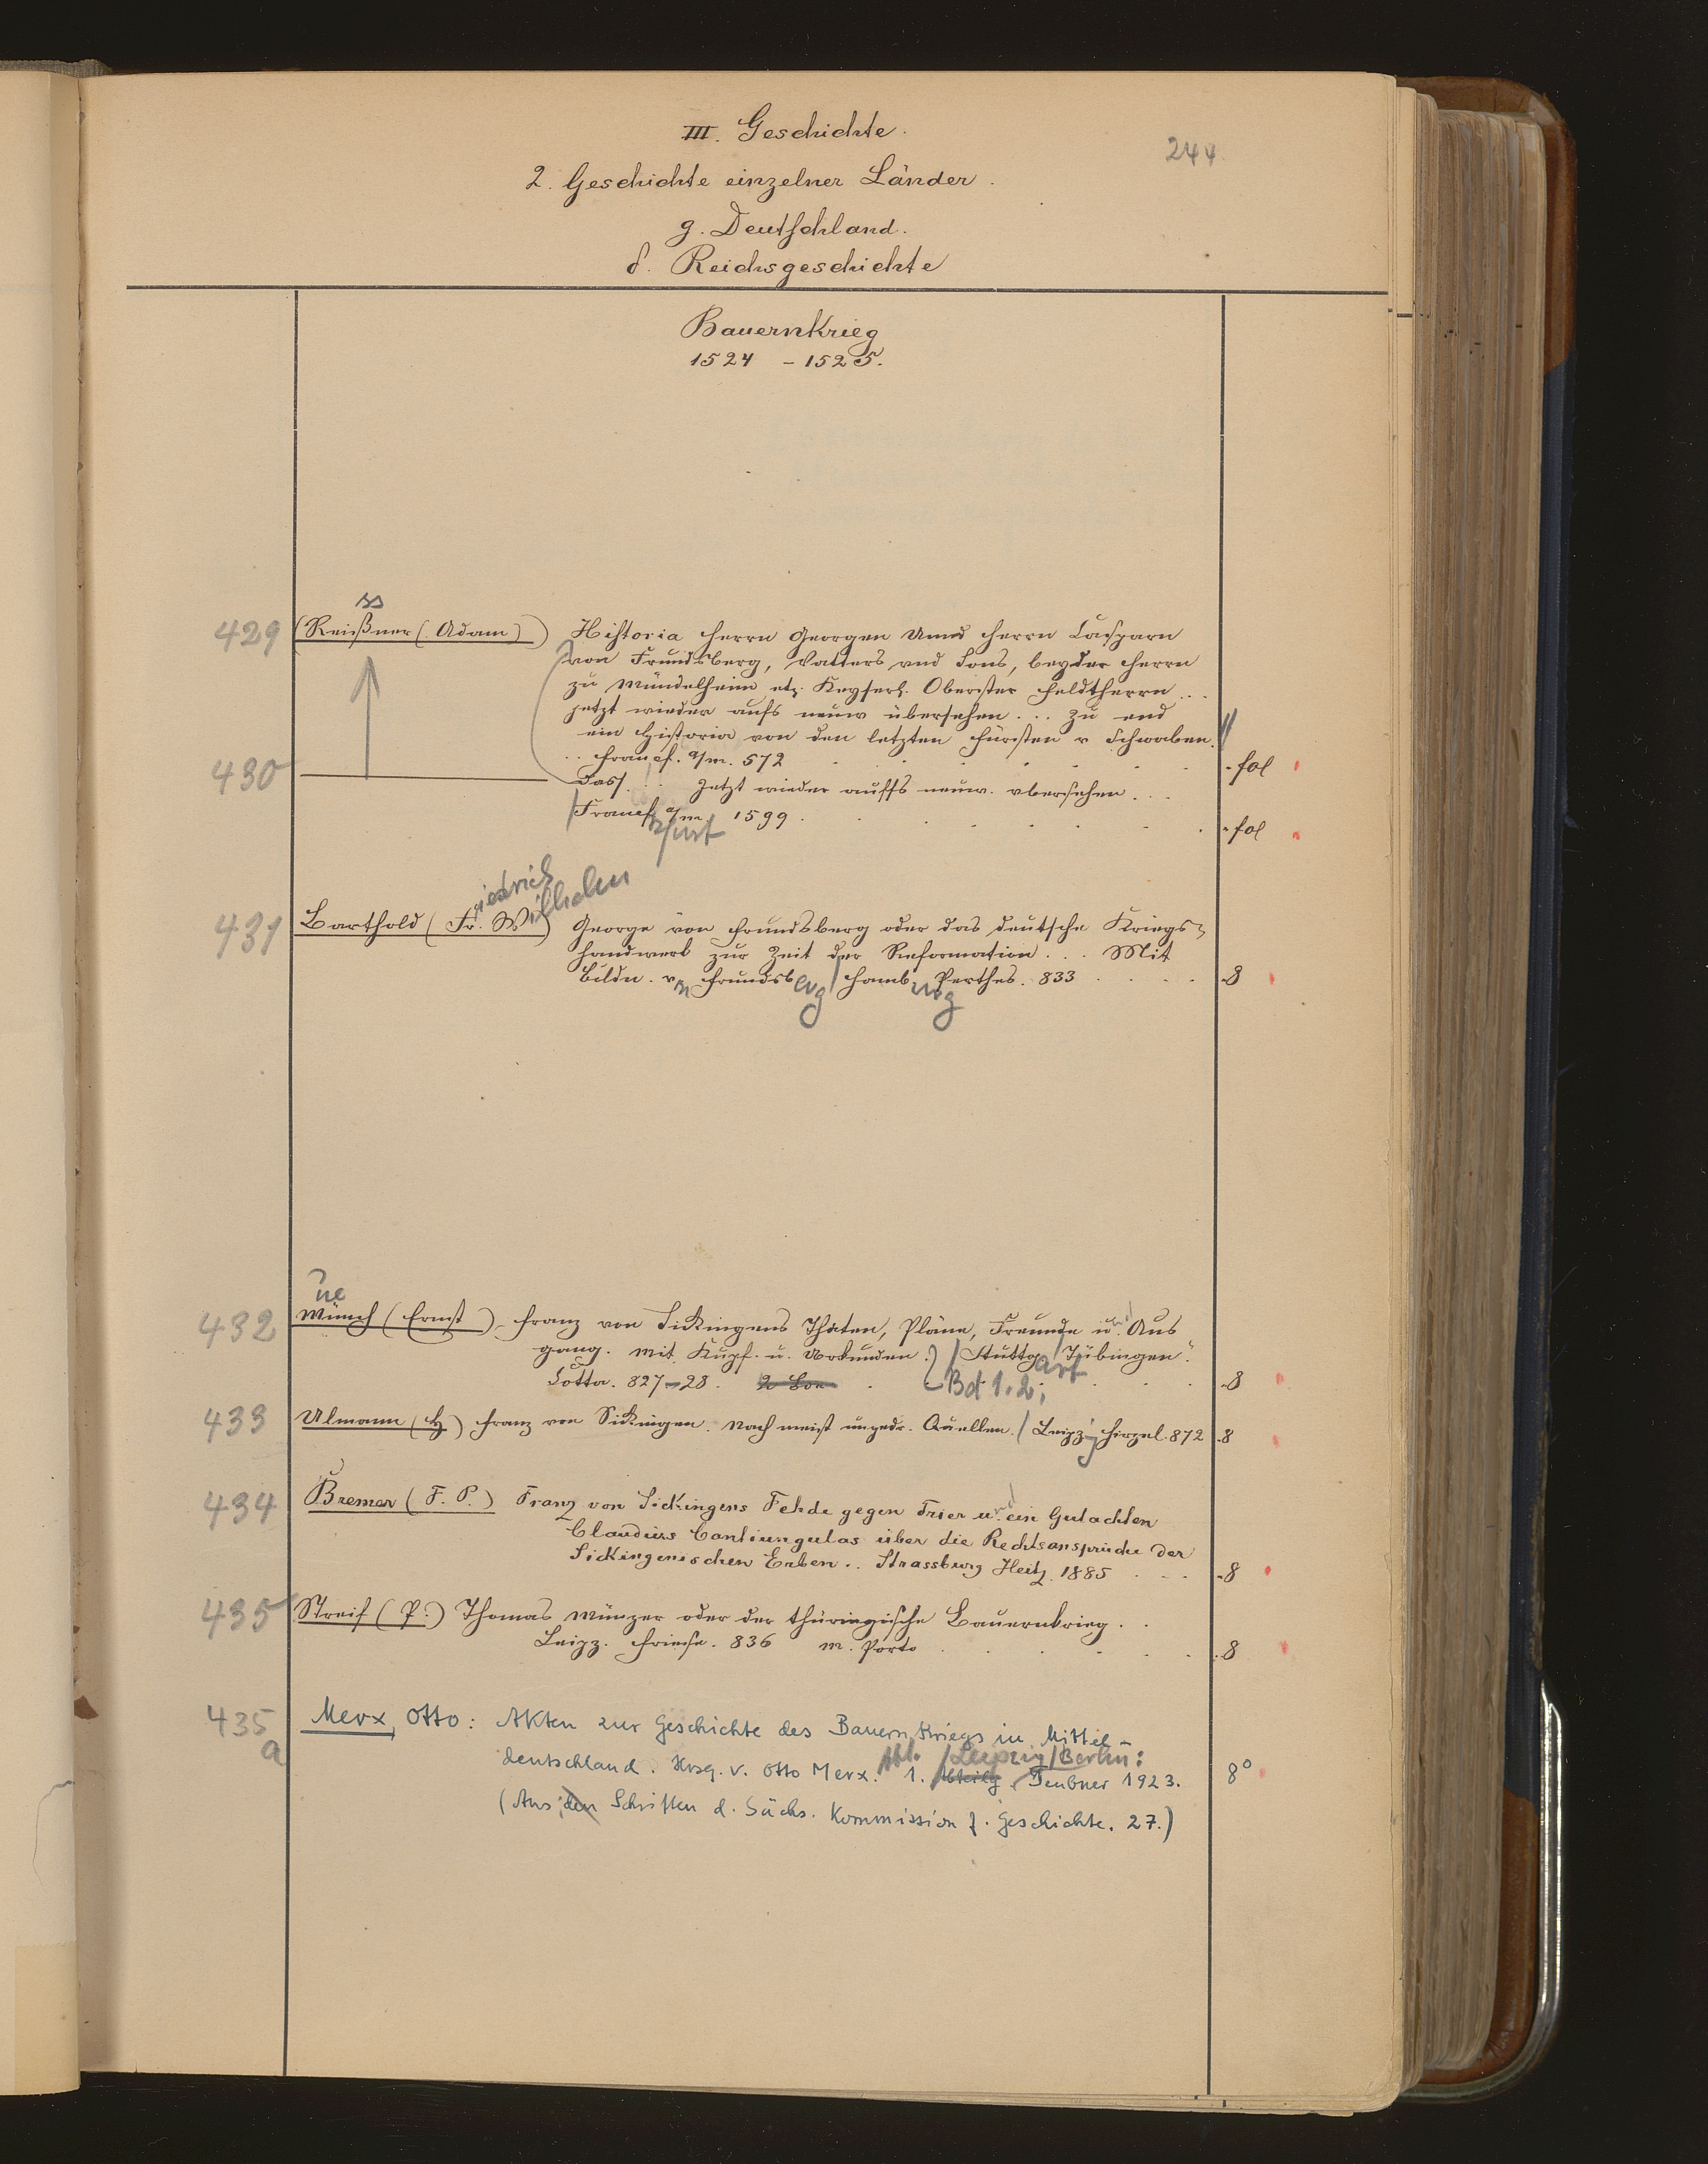 III. Geschichte.
244.
2. Geschichte einzelner Länder.
g. Deutschland.
δ. Reichsgeschichte
Bauernkrieg
1524 - 1525.
ss
429 (Reißner (Adam)) Historia Herrn Georgen Unnd Herrn Casparn
von Frundsberg, Vatters vnd Sons, beyder Herrn
zu Mündelheim etz. Keyserl. Oberster Feldtherrn ...
jetzt wieder aufs neuw übersehen ... Zu end
ein Historia von den letzten Fürsten v Schwaben.
.. Francf. a/m. 572 . fol
430 Dass. ... Jetzt wieder auffs neuw. vbersehen ...
/Francf a/m. 1599 . fol
furt
iedrich
ilhelm
431 Barthold (Fr. W) George von Frundsberg oder das deutsche Kriegs-
handwerk zur Zeit der Reformation ... Mit
Bildn. v. Frundsberg / Hamburg Perthes. 833 . 8
432 Münch (Ernst) Franz von Sickingens Thaten, Pläne, Freunde und Aus
gang. Mit Kupf. u. Urkunden. / Stuttgart / Tübingen.
Cotta. 827-28. 2 Bde Bd 1. 2; . 8
433 Ulmann (H) Franz von Sickingen. Nach meist ungedr. Quellen. / Leipzig Hirzel. 872 . 8
434 Bremer (F. P.) Franz von Sickingens Fehde gegen Trier und ein Gutachten
Claudius Cantiunculas über die Rechtsansprüche der
Sickingenischen Erben .. Strassburg Heitz. 1885 . 8
435 Streif (P.) Thomas Münzer oder der thüringische Bauernkrieg ..
Leipz. Friese. 836 m. Porto . 8
435a Merx, Otto: Akten zur Geschichte des Bauernkriegs in Mittel-
deutschland. Hrsg. v. Otto Merx. Abt. 1. Abteilg. / Leipzig / Berlin: Teubner 1923. 8°
(Aus: den Schriften d. Sächs. Kommission f. Geschichte. 27.)